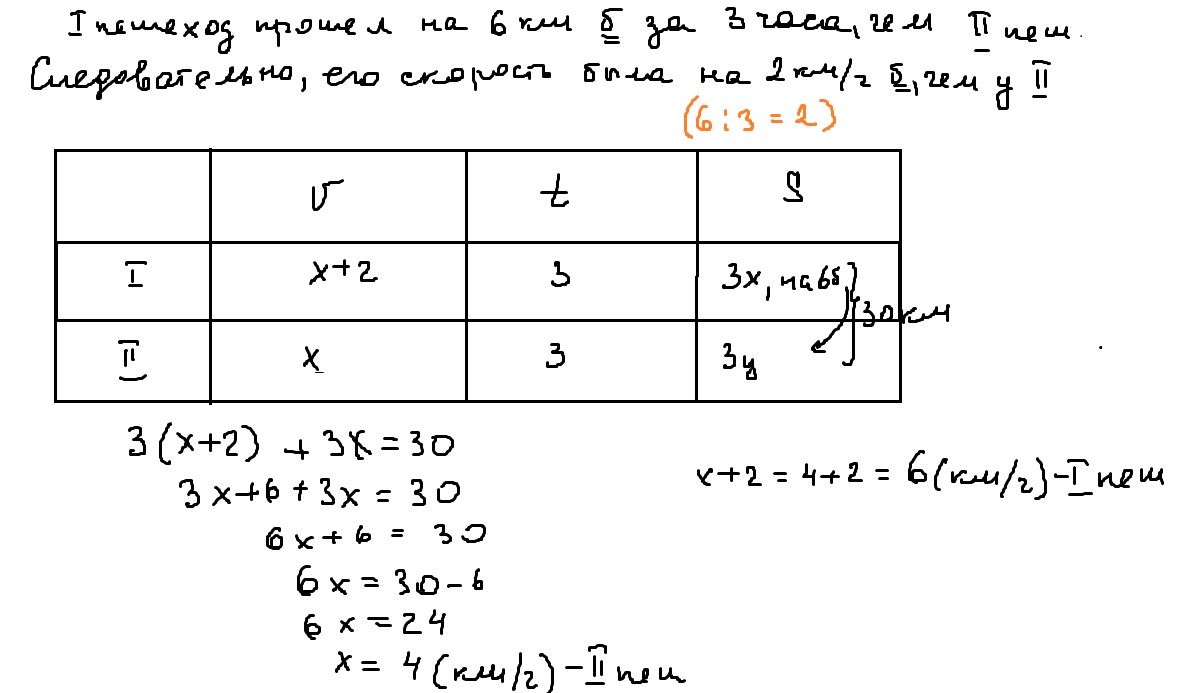 I пешеход прошел на 6 км б за 3 часа, чем II пеш.
Следовательно, его скорость была на 2 км/ч б, чем у II
(6 : 3 = 2)
v t S
I x+2 3 3x, на 6б
30 км
II x 3 3y
3(x+2) + 3x = 30
3x+6+3x = 30
6x+6 = 30
6x = 30-6
6x = 24
x = 4 (км/ч) - II пеш
x+2 = 4+2 = 6 (км/ч) - I пеш